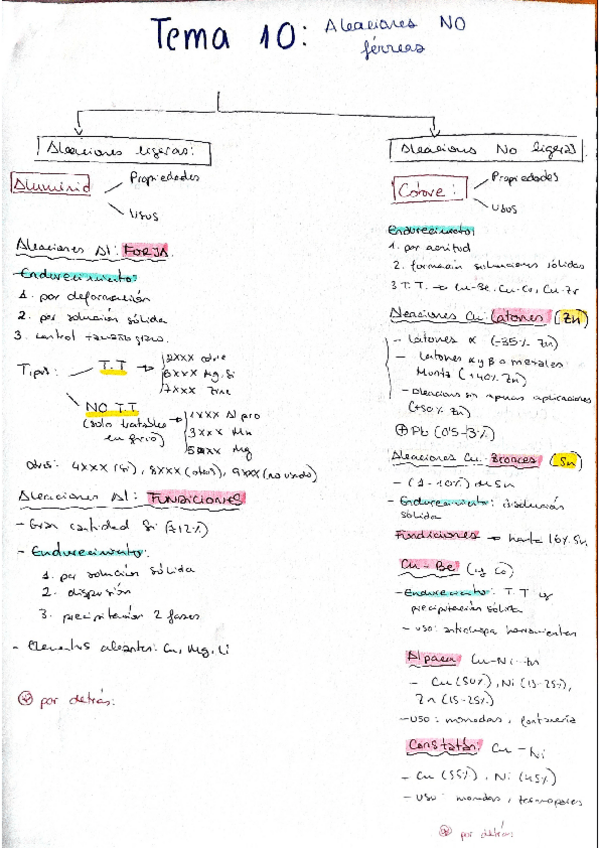 Tema 10: Aleaciones NO
férreas
Aleaciones ligeras:
Aluminio
Propiedades
Usos
Aleaciones Al: FORJA.
- Endurecimiento:
1. por deformación
2. por solución sólida
3. control tamaño grano.
Tipos:
T.T
2XXX cobre
6XXX Mg.Si
7XXX Zinc
NO T.T
(solo tratables
en frío)
1XXX Al puro
3XXX Mn
5XXX Mg
Otros: 4XXX (Si), 8XXX (otros), 9XXX (no usado)
Aleaciones Al: FUNDICIONES
- Gran cantidad Si (≈12%)
- Endurecimiento:
1. por solución sólida
2. dispersión
3. precipitación 2 fases
- Elementos aleantes: Cu, Mg, Li
por detrás:
Aleaciones No ligeras
Cobre:
Propiedades
Usos
Endurecimiento:
1. por acritud
2. formación soluciones sólidas
3 T.T. → Cu-Be, Cu-Co, Cu-Zr
Aleaciones Cu: Latones (Zn)
- Latones α (-35% Zn)
- Latones α y β o metales
Muntz (+40% Zn)
- Aleacions sin apenas aplicaciones
(+50% Zn)
⊕ Pb (0'5-3%)
Aleaciones Cu: Bronces (Sn)
- (1-10%) de Sn
- Endurecimiento: disolución
sólida
Fundiciones → hasta 16% Sn
Cu-Be (y Co)
- Endurecimiento: T.T y
precipitación sólida
- uso: antichispa herramientas
Alpaca Cu-Ni-Zn
- Cu (50%), Ni (15-25%),
Zn (15-25%)
- uso: monedas, fontanería
Constatán: Cu-Ni
- Cu (55%), Ni (45%)
- uso: monedas, termopares
por detrás